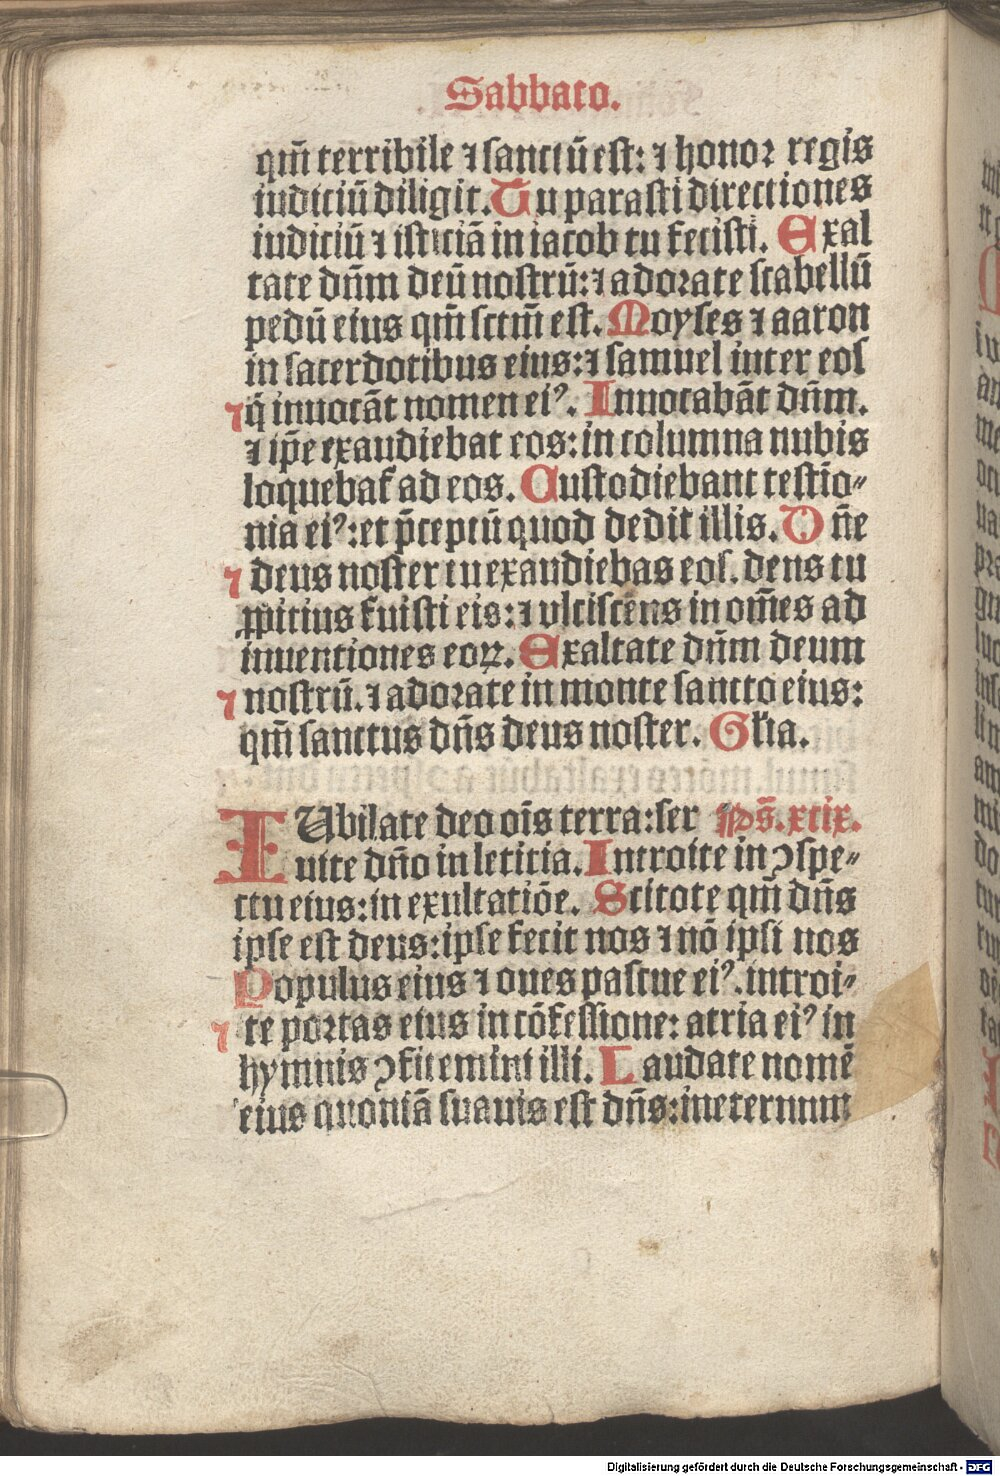 Sabbato.
qm̄ terribile ⁊ sanctū est: ⁊ honoꝛ regis
iudiciū diligit. Tu parasti directiones
iudiciū ⁊ isticiā in iacob tu fecisti. Exal
tate dn̄m deū nostrū: ⁊ adoꝛate scabellū
pedū eius qm̄ sctm̄ est. Moyses ⁊ aaron
in sacerdotibus eius: ⁊ samuel inter eos
q̄ inuocāt nomen eiꝰ. Inuocabāt dn̄m.
⁊ ip̄e exaudiebat eos: in columna nubis
loquebat᷑ ad eos. Custodiebant testīo⸗
nia eiꝰ: et p̄ceptū quod dedit illis. Dn̄e
deus noster tu exaudiebas eos. deus tu
ꝓpitius fuisti eis: ⁊ vlciscens in om̄es ad
inuentiones eoꝝ. Exaltate dn̄m deum
nostrū. ⁊ adoꝛate in monte sancto eius:
qm̄ sanctus dn̄s deus noster. Gl̄ia.
IUbilate deo oīs terra: ser Ps̄. xcix.
uite dn̄o in leticia. Introite in ꝯspe⸗
ctu eius: in exultatiōe. Scitote qm̄ dn̄s
ipse est deus: ipse fecit nos ⁊ nō ipsi nos
Populus eius ⁊ oues pascue eiꝰ. introi⸗
te poꝛtas eius in cōfessione: atria eiꝰ in
hymnis ꝯfitemini illi. Laudate nomē
eius quoniā suauis est dn̄s: ineternum
Digitalisierung gefördert durch die Deutsche Forschungsgemeinschaft - DFG